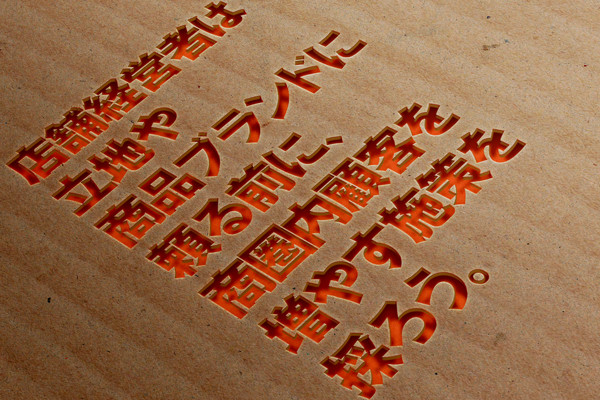 店舗経営者は
立地や
商品ブランドに
頼る前に、
商圏内顧客を
増やす施策を
採ろう。